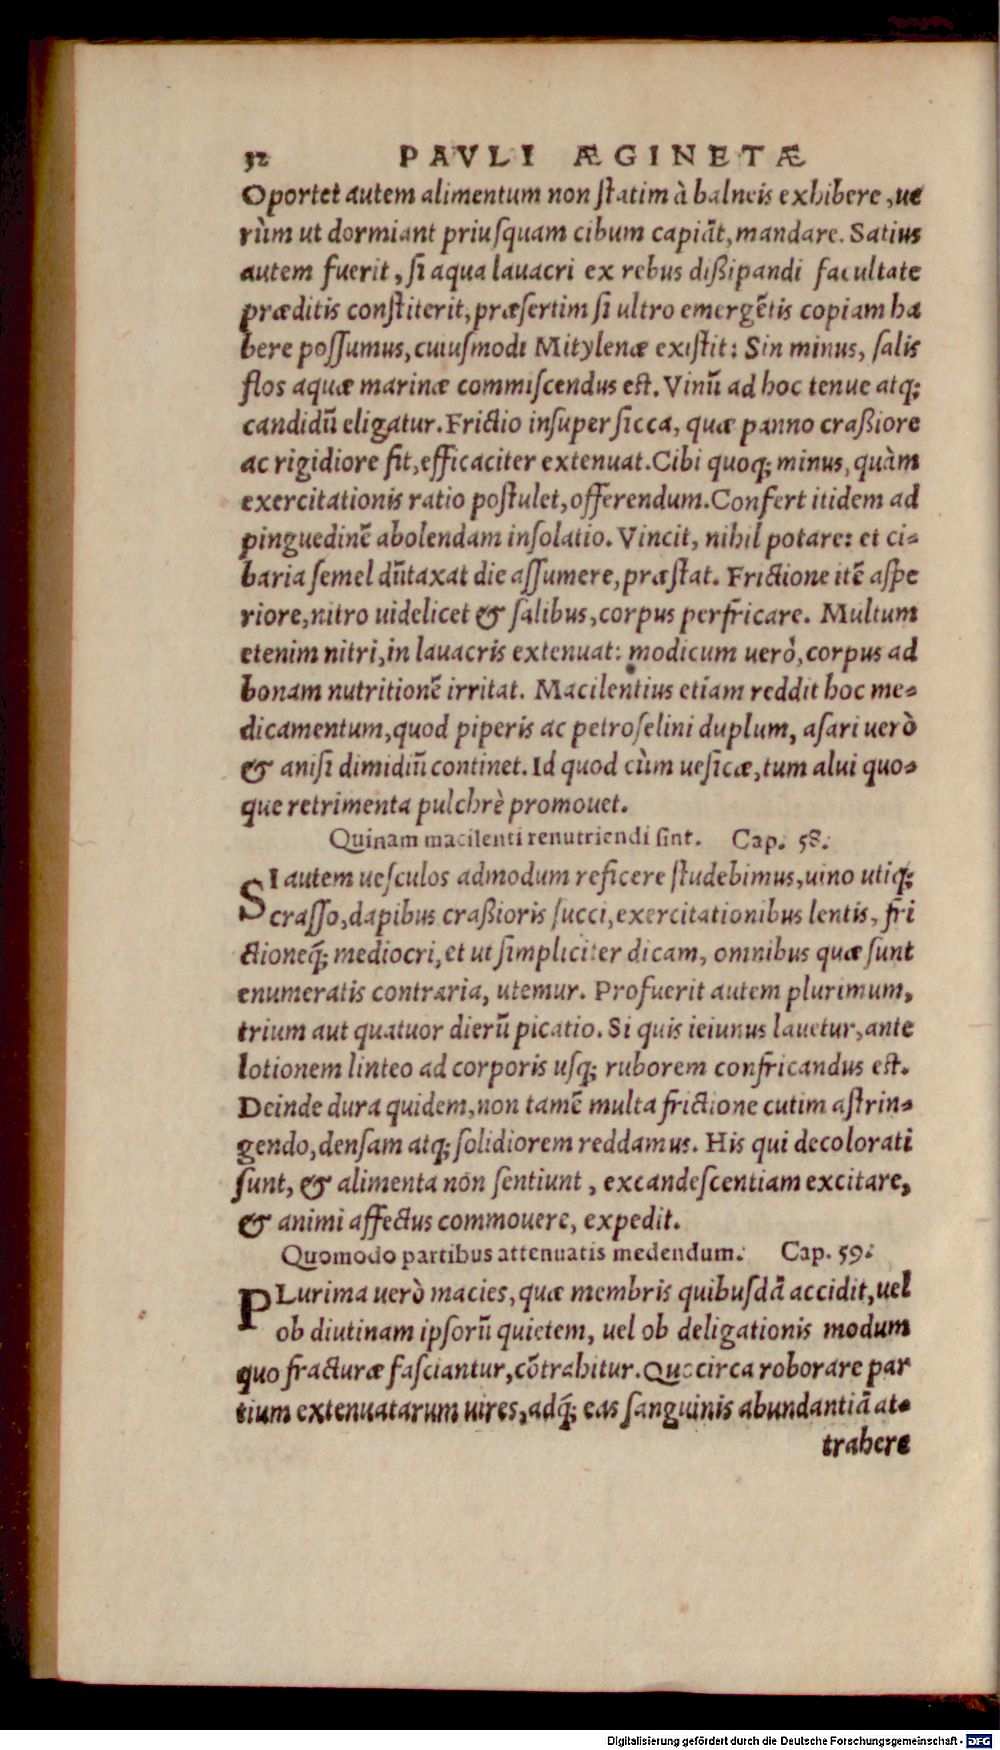 32 PAVLI ÆGINETÆ
Oportet autem alimentum non ſtatim à balneis exhibere, ue
rùm ut dormiant priuſquam cibum capiāt, mandare. Satius
autem fuerit, ſi aqua lauacri ex rebus dißipandi facultate
præditis conſtiterit, præſertim ſi ultro emergētis copiam ha
bere poſſumus, cuiuſmodi Mitylenæ exiſtit: Sin minus, ſalis
flos aquæ marinæ commiſcendus est. Vinū ad hoc tenue atq;
candidū eligatur. Frictio inſuper ſicca, quæ panno craßiore
ac rigidiore fit, efficaciter extenuat. Cibi quoq; minus, quàm
exercitationis ratio poſtulet, offerendum. Confert itidem ad
pinguedinē abolendam inſolatio. Vincit, nihil potare: et ci-
baria ſemel dūtaxat die aſſumere, præſtat. Frictione itē aſpe
riore, nitro uidelicet & ſalibus, corpus perfricare. Multum
etenim nitri, in lauacris extenuat: modicum uerò, corpus ad
bonam nutritionē irritat. Macilentius etiam reddit hoc me-
dicamentum, quod piperis ac petroſelini duplum, aſari uerò
& aniſi dimidiū continet. Id quod cùm ueſicæ, tum alui quo-
que retrimenta pulchrè promouet.
Quinam macilenti renutriendi ſint. Cap. 58.
SI autem ueſculos admodum reficere ſtudebimus, uino utiq́;
craſſo, dapibus craßioris ſucci, exercitationibus lentis, fri
ctioneq́; mediocri, et ut ſimpliciter dicam, omnibus quæ ſunt
enumeratis contraria, utemur. Profuerit autem plurimum,
trium aut quatuor dierū picatio. Si quis ieiunus lauetur, ante
lotionem linteo ad corporis uſq; ruborem confricandus est.
Deinde dura quidem, non tamē multa frictione cutim aſtrin-
gendo, denſam atq; ſolidiorem reddamus. His qui decolorati
ſunt, & alimenta non ſentiunt, excandeſcentiam excitare,
& animi affectus commouere, expedit.
Quomodo partibus attenuatis medendum. Cap. 59.
PLurima uerò macies, quæ membris quibuſdā accidit, uel
ob diutinam ipſorū quietem, uel ob deligationis modum
quo fracturæ faſciantur, cōtrahitur. Quocirca roborare par
tium extenuatarum uires, adq́; eas ſanguinis abundantiā at-
trahere
Digitalisierung gefördert durch die Deutsche Forschungsgemeinschaft - DFG